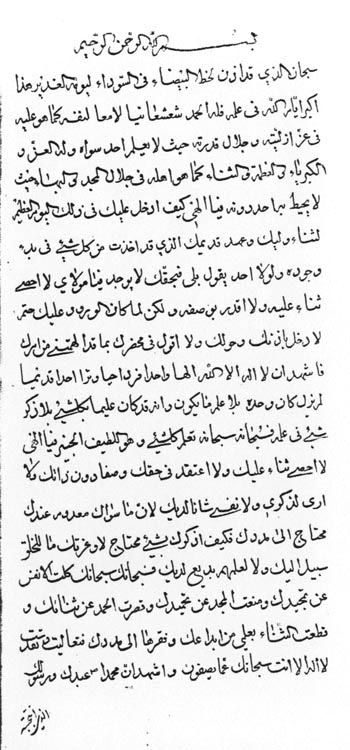 بسم الله الرحمن الرحيم
سبحان الذي قد اذن لخط البيضاء في السوداء ليوم الغدير هذا
اكبر ايام الله في علمه فله الحمد شعشعانيا لامعا لنفسه كما هو عليه
في عز ازليته و جلال قدرته حيث لا يعلم احد سواه و له العز و
الكبرياء و العظمة و الثناء كما هو اهله في جلال المجد و البهاء حيث
لا يحيط به احد دونه فيا الهي كيف ادخل عليك في ذلك اليوم العظيم
لثناء وليك و عهد قديمك الذي قد اخذت من كل شيء في بدء
وجوده و لولا احد يقول بلى فبحقك لا يوجد فيا مولاي لا احصي
ثناء عليه و لا اقدر بن صفه و لكن لما كان الورود عليك حتم
لا دخل باذنك و حولك و لا اقول في محضرك بما قد الهمتني من ازلك
فاشهد ان لا اله الا الله الها واحدا فردا حيا وترا احدا قديما
لم يزل كان وحده بلا علم ما يكون و انه قد كان عليما بكل شيء بلا ذكر
شيء في علم فسبحانه سبحانه تعلم كل شيء و هو اللطيف الخبير فيا الهي
لا احصي ثناء عليك و لا اعتقد في حقك وصفا دون ذاتك و لا
ارى لذكري و لا نفسي شانا لديك لان ما سواك معدوم عندك
محتاج الى مددك فكيف اذكرك بشيء محتاج لا و عزتك ما للخلق
سبيل اليك و لا لعلمهم بديع لديك فسبحانك سبحانك كلت الانفس
عن تمجيدك و منعت المجد عن تحميدك و قصرت الحمد عن ثنائك و
قطعت الثناء بعلمي من ابداعك و فقرها الى مددك فتعاليت و تقدست
لا اله الا انت سبحانك عما يصفون و اشهد ان محمدا عبدك و رسولك
الذي